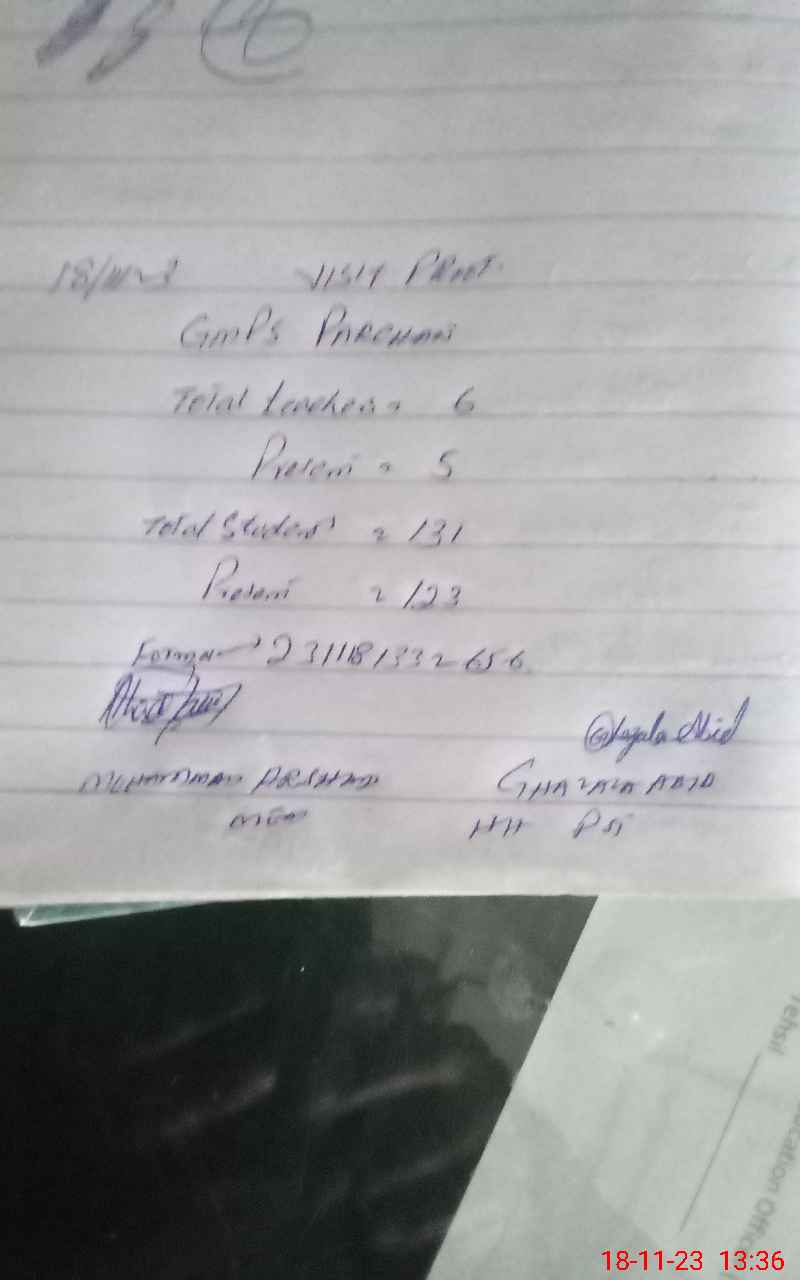 18/11/23 VISIT PROOF
GMPS PARCHAN
Total teachers = 6
Present = 5
Total Students = 131
Present = 123
231118133 2656
Ghazala Abid
MUHAMMAD ARSHAD GHAZALA ABID
MEA HH PST
Tehsil
ucation Offic
18-11-23 13:36